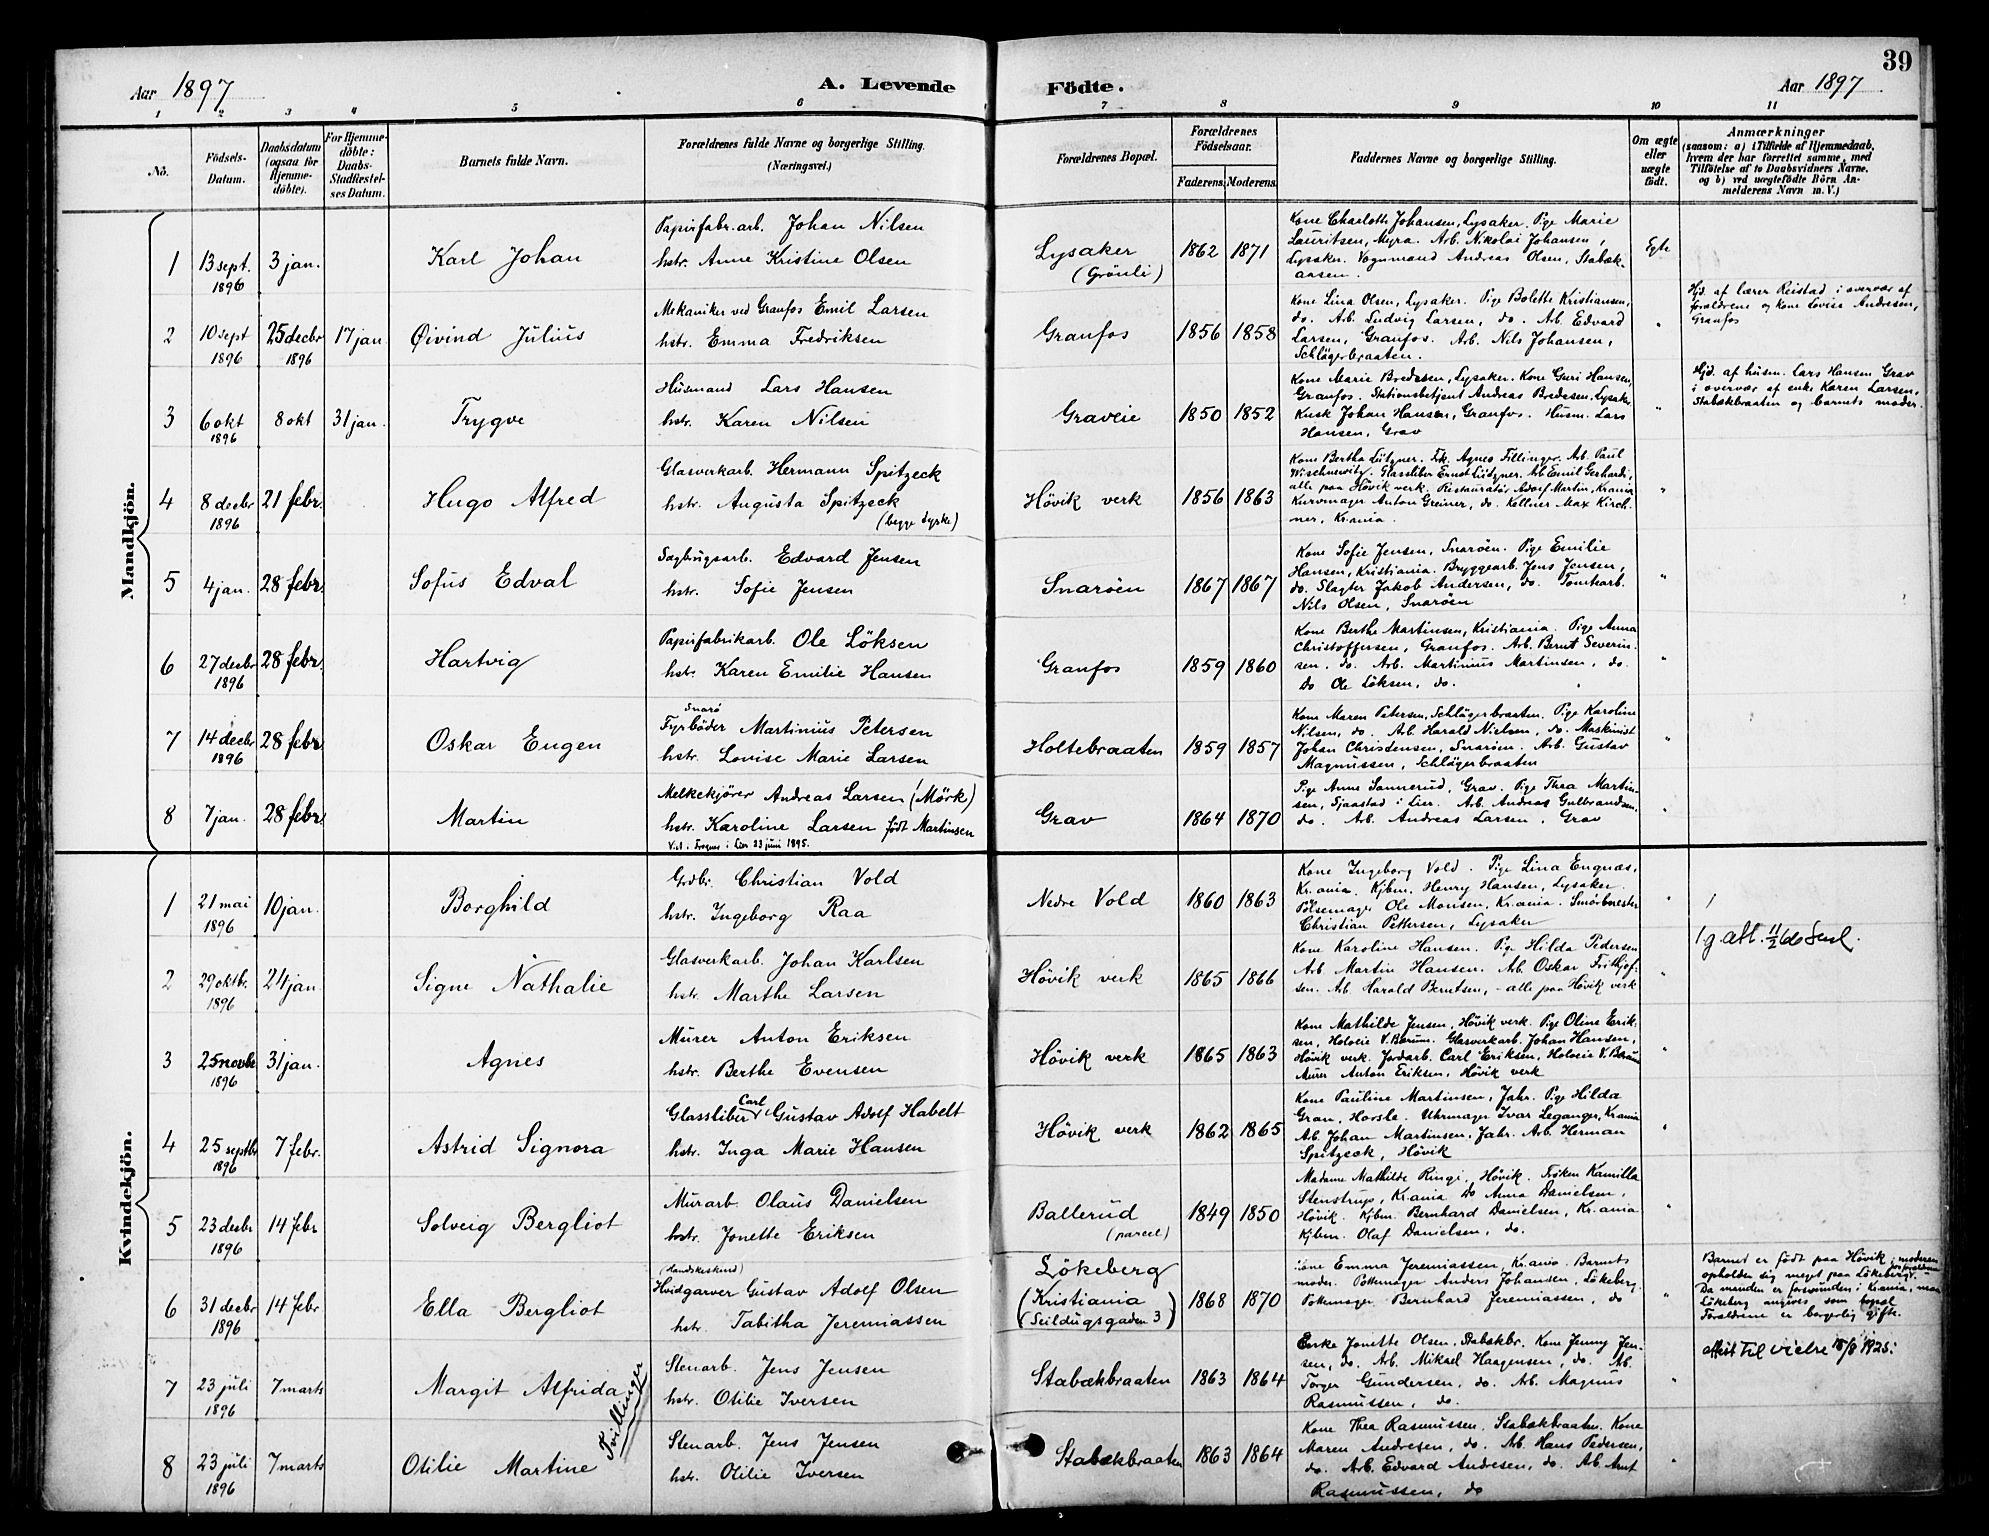 39
Aar 1897 A. Levende Födte. Aar 1897
1 2 3 4 5 6 7 8 9 10 11
No.
Födsels-
Datum.
Daabsdatum
(ogsaa for
Hjemme-
döbte).
For Hjemme-
döbte:
Daabs-
Stadfæstel-
ses Datum.
Barnets fulde Navn.
Forældrenes fulde Navne og borgerlige Stilling.
(Næringsvei.)
Forældrenes Bopæl.
Forældrenes
Födselsaar.
Faderens. Moderens.
Faddernes Navne og borgerlige Stilling.
Om ægte
eller
uægte
födt.
Anmærkninger
(saasom: a) i Tilfælde af Hjemmedaab,
hvem der har forrettet samme, med
Tilföielse af to Daabsvidners Navne.
og b) ved uægtefödte Börn An-
melderens Navn m. V.)
Mandkjön.
1 13 sept. 1896 3 jan. Karl Johan
Papirfabr.arb. Johan Nilsen
hstr. Anne Kristine Olsen
Lysaker (Grönli) 1862 1871
Kone Charlotte Johansen, Lysaker. Pige Marie
Lauritsen, Myra. Arb. Nikolai Johansen,
Lysaker. Vognmand Andreas Olsen, Stabæk-
aasen.
Egte
2 10 sept 1896 25 decbr 1896 17 jan Øivind Julius
Mekaniker ved Granfos Emil Larsen
hstr. Emma Fredriksen
Granfos 1856 1858
Kone Lina Olsen, Lysaker. Pige Bolette Kristiansen,
do. Arb. Ludvig Larsen, do. Arb. Edvard
Larsen, Granfos. Arb. Nils Johansen,
Schlägerbraaten.
"
Hjd. af lærer Reistad i overvær af
forældrene og kone Lovise Andresen,
Granfos
3 6 okt 1896 8 okt 31 jan. Trygve
Husmand Lars Hansen
hstr. Karen Nilsen
Graveie 1850 1852
Kone Marie Bredesen, Lysaker. Kone Guri Hansen,
Granfos. Stationsbetjent Andreas Bredesen, Lysaker.
Kusk Johan Hansen, Granfos. Husm. Lars
Hansen, Grav
"
Hjd. af husm. Lars Hansen Grav
i overvær af enke Karen Larsen,
Stabækbraaten og barnets moder.
4 8 decbr 1896 21 febr. Hugo Alfred
Glasverkarb. Hermann Spitzeck
hstr. Augusta Spitzeck
(begge tyske)
Hövik verk 1856 1863
Kone Bertha Lützner. Frk. Agnes Fillinger. Arb. Paul
Wischnewitz. Glassliber Ernst Lützner. Arb Emil Gerhardi,
alle paa Hövik verk. Restauratör Adolf Martin, Kr.ania
Kurvmager Anton Greiner, do. Kellner Max Kirch-
ner, Kr.ania.
"
5 4 jan. 28 febr. Sofus Edval
Sagbrugsarb. Edvard Jensen
hstr. Sofie Jensen
Snaröen 1867 1867
Kone Sofie Jensen, Snaröen. Pige Emilie
Hansen, Kristiania. Bryggearb. Jens Jensen,
do. Slagter Jakob Andersen, do. Tomtearb.
Nils Olsen, Snaröen
"
6 27 decbr 1896 28 febr. Hartvig
Papirfabrikarb. Ole Löksen
hstr. Karen Emilie Hansen
Granfos 1859 1860
Kone Berthe Martinsen, Kristiania. Pige Anna
Christoffersen, Granfos. Arb. Bernt Severin-
sen, do. Arb. Martinius Martinsen, do.
Do Ole Löksen, do.
"
7 14 decbr 1896 28 febr. Oskar Eugen
Snarö
Fyrböder Martinius Petersen
hstr. Lovise Marie Larsen
Holtebraaten 1859 1857
Kone Maren Petersen, Schlägerbraaten. Pige Karoline
Nilsen, do. Arb. Harald Nielsen, do. Maskinist
Johan Christensen, Snaröen. Arb. Gustav
Magnussen, Schlägerbraaten
"
8 7 jan. 28 febr. Martin
Melkekjörer Andreas Larsen (Mörk)
hstr. Karoline Larsen födt Martinsen
Vid. i Frogner i Lier 23 juni 1895.
Grav 1864 1870
Pige Anne Sonnerud, Grav. Pige Thea Martin-
sen, Sjaastad i Lier. Arb. Andreas Gulbrandsen,
do. Arb. Andreas Larsen. Grav
"
Kvindekjön.
1 21 mai 1896 10 jan. Borghild
Grdbr. Christian Vold
hstr. Ingeborg Raa
Nedre Vold 1860 1863
Kone Ingeborg Vold. Pige Lina Engnæs,
Kr.ania. Kjbm. Henry Hansen, Lysaker.
Pölsemager Ole Monsen, Kr.ania. Smörbmester
Christian Pettersen, Lysaker
"
1 g. att. 11/2 60
2 29 oktbr. 1896 24 jan. Signe Nathalie
Glasverkarb. Johan Karlsen
hstr. Marthe Larsen
Hövik verk 1865 1866
Kone Karoline Hansen. Pige Hilda Pedersen
Arb. Martin Hansen. Arb. Oskar Frithjof-
sen. Arb. Harald Berntsen, - alle paa Hövik verk
"
3 25 novbr 1896 31 jan. Agnes
Murer Anton Eriksen
hstr. Berthe Evensen
Hövik verk 1865 1863
Kone Mathilde Jensen, Hövik verk. Pige Oline Erik-
sen, Holoeie V. Bærum. Glasverkarb. Johan Hansen,
Hövik verk. Jordarb. Carl Eriksen, Holoeie V. Bærum
Murer Anton Eriksen, Hövik verk
"
4 25 septbr 1896 7 febr. Astrid Signora
Carl
Glassliber Gustav Adolf Habelt
hstr. Inga Marie Hansen
Hövik verk 1862 1865
Kone Pauline Martinsen, Jahr. Pige Hilda
Gran, Horsle. Uhrmager Ivar Leganger, Kr.ania
Arb. Johan Martinsen, Jahr. Arb. Herman
Spitzeck, Hövik
"
5 23 decbr 1896 14 febr Solveig Bergliot
Murarb. Olaus Danielsen
hstr. Jonette Eriksen
Ballerud (parcel) 1849 1850
Madame Mathilde Ringi, Hövik. Fröken Kamilla
Stenstrup, Kr.ania Do Anna Danielsen,
Hövik. Kjbm. Bernhard Danielsen, Kr.ania
Kjbm. Olaf Danielsen, do.
"
6 31 decbr 1896 14 febr. Ella Bergliot
(Handskeskind)
Hvidgarver Gustav Adolf Olsen
hstr. Tabitha Jeremiassen
Lökeberg
(Kristiania
Seildugsgaden 3)
1868 1870
Kone Emma Jeremiassen, Kr.ania. Barnets
moder. Pottemager Anders Johansen, Lökeberg.
Pottemager Bernhard Jeremiassen, do
"
Barnet er födt paa Hövik, moderen
opholder sig meget paa Lökeberg hos forældrene
Da manden er forsvunden i Kr.ania, maa
Lökeberg angives som bopæl
Forældrene er borgerlig gifte.
7 23 juli 1896 7 marts Margit Alfrida
Stenarb. Jens Jensen
hstr. Otilie Iversen
Stabækbraaten 1863 1864
Enke Jonette Olsen, Stabækbr. Kone Jenny Jen-
sen, do. Arb. Mikael Haagensen, do. Arb.
Torger Gundersen, do. Arb. Magnus
Rasmussen, do.
"
Attest til vielse 15/8 1925.
Tvillinger
8 23 juli 1896 7 marts Otilie Martine
Stenarb. Jens Jensen
hstr. Otilie Iversen
Stabækbraaten 1863 1864
Kone Thea Rasmussen, Stabækbraaten. Kone
Maren Andresen, do. Arb. Hans Pedersen,
do. Arb. Edvard Andresen, do. Arb. Amt
Rasmussen, do
"